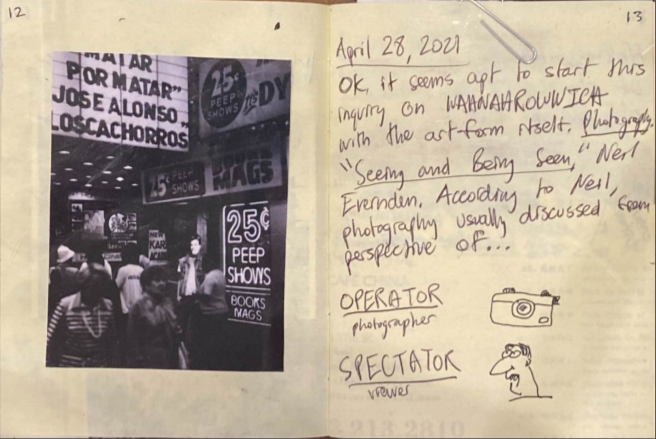 12
MATAR
POR MATAR"
JOSE ALONSO
LOSCACHORROS
25¢
PEEP
SHOWS
DY
25¢ PEEP SHOWS
MAGS
25¢
PEEP
SHOWS
BOOKS
MAGS
13
April 28, 2021
OK, it seems apt to start this
inquiry on
with the art-form itself. Photography.
"Seeing and Being Seen," Neil
Evernden. According to Neil,
photography usually discussed from
perspective of...
OPERATOR
photographer
SPECTATOR
viewer
213 2810